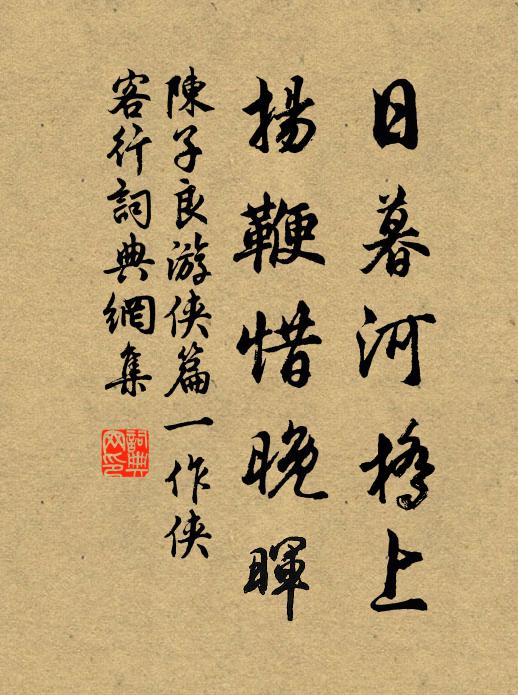 日暮河橋上
揚鞭惜晚暉
陳子良游俠篇一作俠
客行詞典網集
詞典
网印